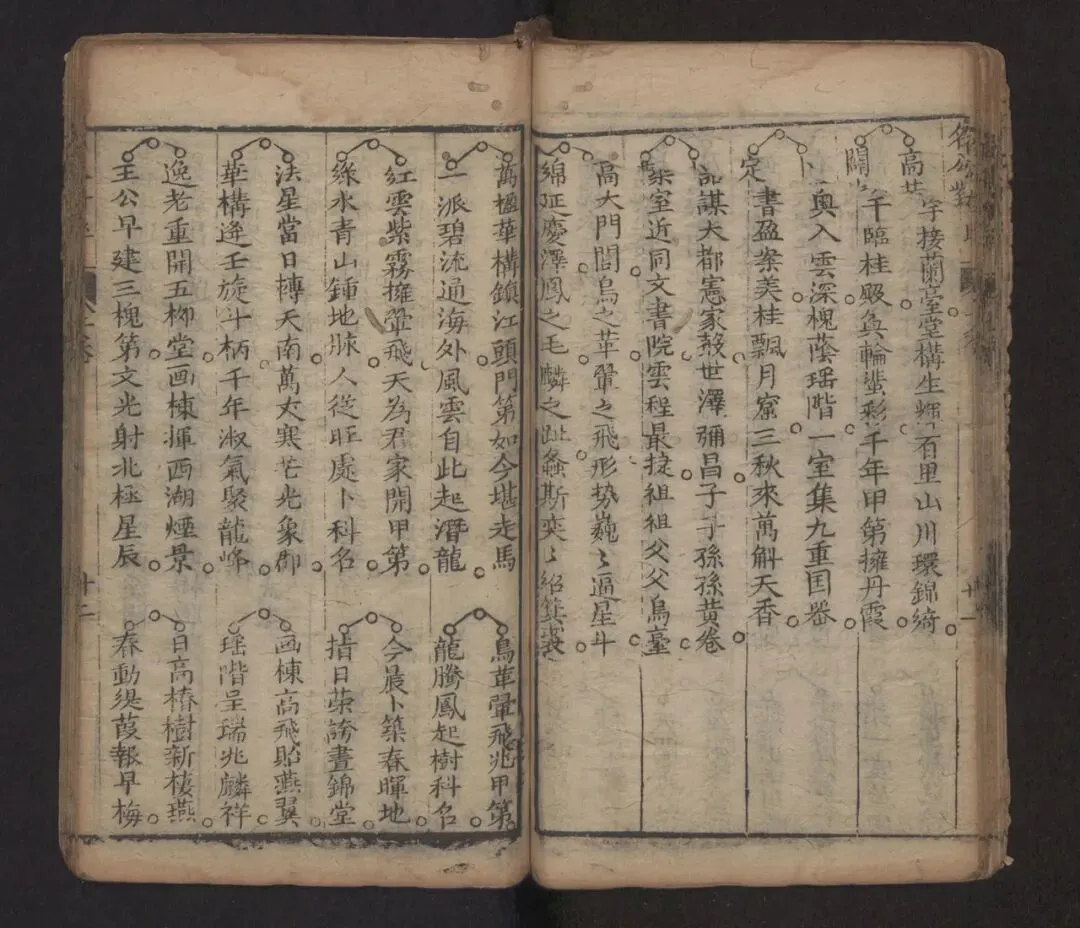 高 字接蘭臺堂構生輝百里山川環錦綺
闢 千臨桂殿奐輪蜚彩千年甲第擁丹霞
卜 奥入雲深槐蔭瑶階一室集九重国器
定 書盈案美桂飄月窟三秋來萬斛天香
詒謀大都憲家殽世澤彌昌子子孫孫黄卷
築室近同文書院雲程最捷祖祖父父烏臺
高大門閭鳥之革翬之飛形势巍〻逼星斗
綿延慶澤鳳之毛麟之趾螽斯奕〻紹箕裘
萬楹華構鎮江頭門第如今堪走馬
一派碧流通海外風雲自此起潛龍
紅雲紫霧擁翬飛天為君家開甲第
綠水青山鍾地脉人從旺處卜科名
法星當日轉天南萬丈寒芒光象郡
華構逢壬旋斗柄千年淑氣聚龍峰
逸老重開五柳堂画棟揮西湖煙景
王公早建三槐第文光射北極星辰
鳥革翬飛兆甲第
龍騰鳳起樹科名
今晨卜築春暉地
指日荣誇晝錦堂
画棟高飛貽燕翼
瑶階呈瑞兆麟祥
日高椿樹新棲燕
春動緹葭報早梅
十二